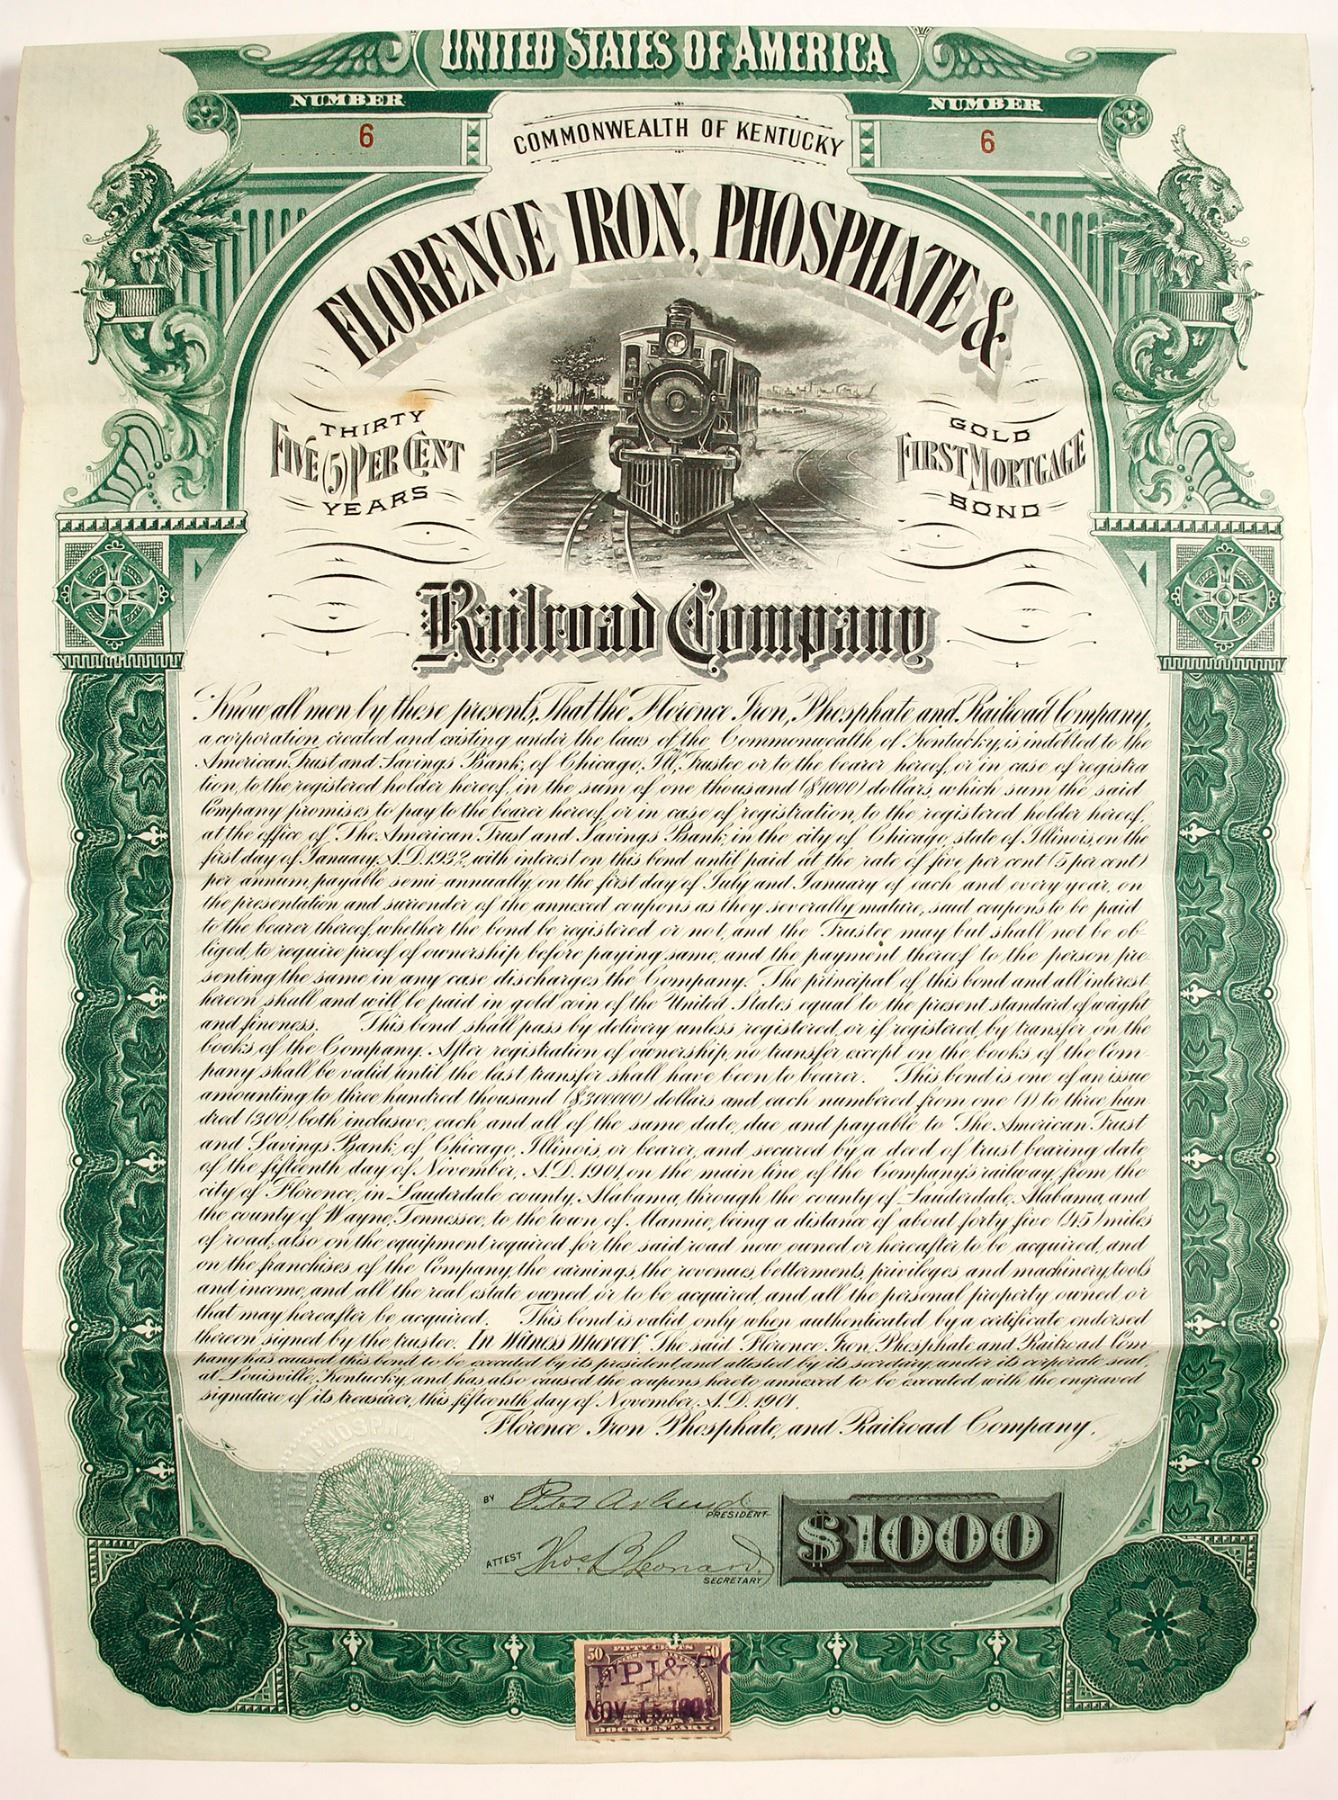 UNITED STATES OF AMERICA
NUMBER
6
NUMBER
6
COMMONWEALTH OF KENTUCKY
FLORENCE IRON, PHOSPHATE &
THIRTY
FIVE (5) PER CENT
YEARS
GOLD
FIRST MORTGAGE
BOND
Railroad Company
Know all men by these presents, That the Florence Iron, Phosphate and Railroad Company,
a corporation created and existing under the laws of the Commonwealth of Kentucky, is indebted to the
American Trust and Savings Bank, of Chicago, Ill., Trustee or to the bearer hereof, or in case of registra
tion, to the registered holder hereof, in the sum of one thousand ($1000) dollars, which sum the said
Company promises to pay to the bearer hereof, or in case of registration, to the registered holder hereof,
at the office of The American Trust and Savings Bank, in the city of Chicago, state of Illinois, on the
first day of January, A.D. 1932, with interest on this bond until paid at the rate of five per cent (5 per cent)
per annum, payable semi-annually, on the first day of July and January of each and every year, on
the presentation and surrender of the annexed coupons as they severally mature, said coupons to be paid
to the bearer thereof, whether the bond be registered or not, and the Trustee may but shall not be ob-
liged, to require proof of ownership before paying same, and the payment thereof to the person pre-
senting the same in any case discharges the Company. The principal of this bond and all interest
hereon shall and will be paid in gold coin of the United States equal to the present standard of weight
and fineness. This bond shall pass by delivery unless registered, or if registered, by transfer on the
books of the Company. After registration of ownership, no transfer except on the books of the Com-
pany shall be valid until the last transfer shall have been to bearer. This bond is one of an issue
amounting to three hundred thousand ($300000) dollars and each numbered from one (1) to three hun
dred (300), both inclusive, each and all of the same date, due and payable to The American Trust
and Savings Bank, of Chicago, Illinois, or bearer, and secured by a deed of trust bearing date
of the fifteenth day of November, A.D. 1901, on the main line of the Company's railway, from the
city of Florence, in Lauderdale county, Alabama, through the county of Lauderdale, Alabama, and
the county of Wayne, Tennessee, to the town of Mannie, being a distance of about forty five (45) miles
of road, also on the equipment required for the said road now owned or hereafter to be acquired, and
on the franchises of the Company, the earnings, the revenues, betterments, privileges and machinery, tools
and income, and all the real estate owned or to be acquired, and all the personal property owned or
that may hereafter be acquired. This bond is valid only when authenticated by a certificate endorsed
thereon signed by the trustee. In Witness Whereof: The said Florence Iron, Phosphate and Railroad Com
pany has caused this bond to be executed by its president, and attested by its secretary, under its corporate seal,
at Louisville, Kentucky, and has also caused the coupons hereto annexed to be executed, with the engraved
signature of its treasurer, this fifteenth day of November, A.D. 1901.
Florence Iron Phosphate, and Railroad Company.
BY
PRESIDENT
ATTEST Thos. B Leonard
SECRETARY
$1000
50 FIFTY CENTS 50
FPI&
NOV 15 1901
DOCUMENTARY